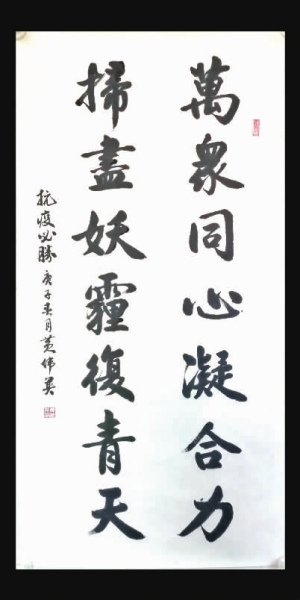 萬衆同心凝合力
掃盡妖霾復青天
抗疫必勝 庚子春月黄偉英